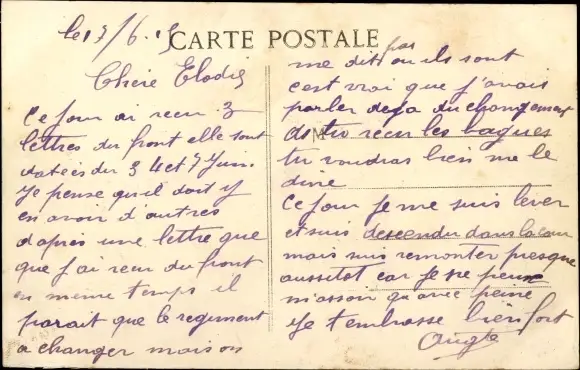 le 13/6.15
CARTE POSTALE
Chere Elodie
Ce jour ai recu 3
lettres du front elle sont
datées du 3 4 et 7 Juin.
Je pense qu'il doit y
en avoir d'autres
d'après une lettre que
que j'ai recu du front
en meme temps il
parait que le regiment
a changer mais on
me dit pas ou ils sont
c'est vrai que j'avais
parler deja du changement
M
as tu recu les bagues
tu voudras bien me le
dire
Ce jour je me suis lever
et suis descendu dans la cour
mais suis remonter presque
aussitot car je ne peux
m'asson qu'avec peine
Je t'embrasse bien fort
Augte